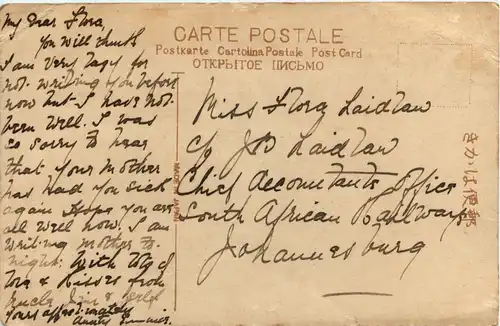 My Dear Flora,
You will think
I am very lazy for
not writing you before
now but I have not
been well. I was
so sorry to hear
that your Mother
has had you sick
again I hope you are
all well now. I am
writing Mother to-
night. With lots of
love & kisses from
Uncle Jim &
Yours
Aunty
CARTE POSTALE
Postkarte Cartolina Postale Post Card
ОТКРЫТОЕ ПИСЬМО
Miss Flora Laidlaw
c/o JB Laidlaw
Chief Accountants Office
South African Railways
Johannesburg
MADE IN JAPAN
きかは便郵